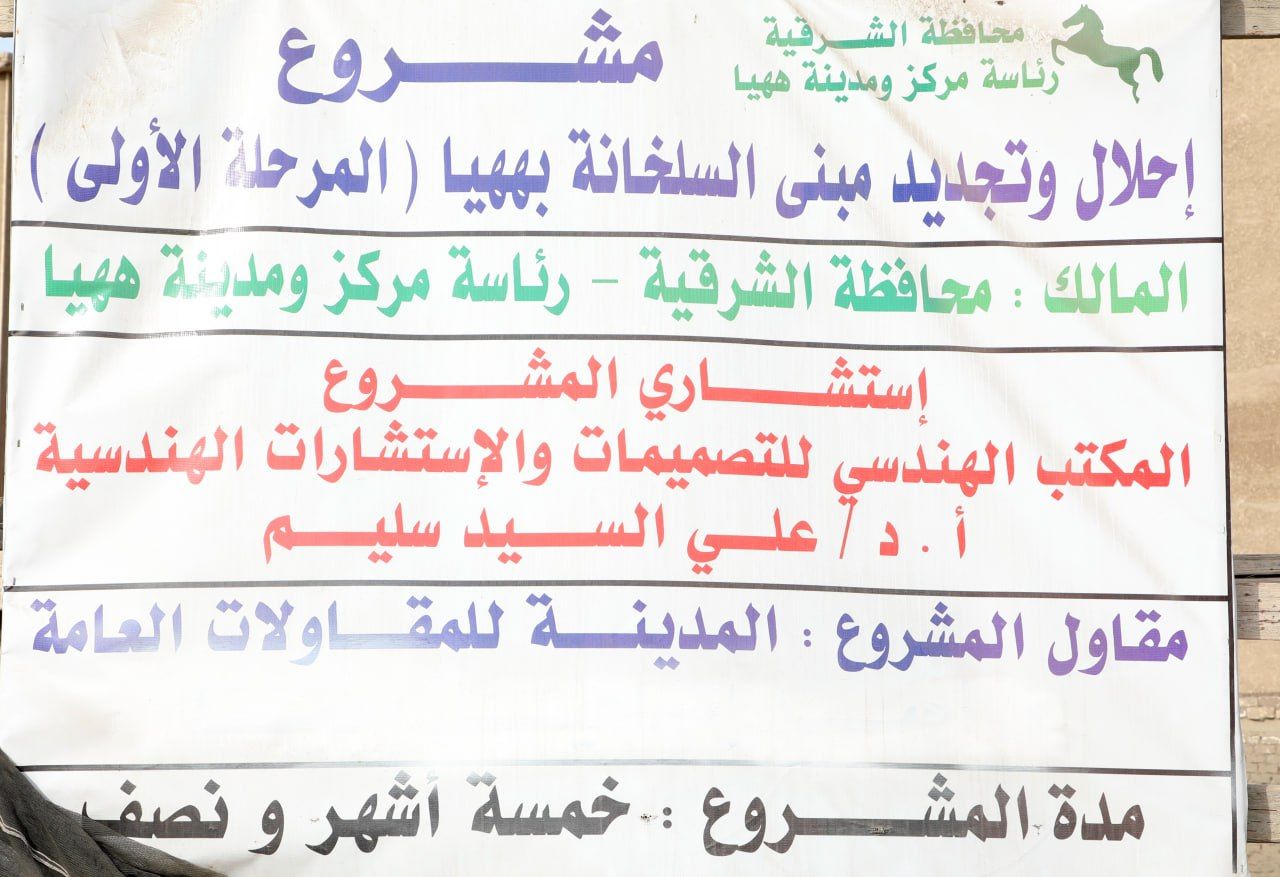 محافظة الشرقية
رئاسة مركز ومدينة ههيا
مشروع
إحلال وتجديد مبنى السلخانة بههيا ( المرحلة الأولى )
المالك : محافظة الشرقية - رئاسة مركز ومدينة ههيا
إستشاري المشروع
المكتب الهندسي للتصميمات والإستشارات الهندسية
أ . د / علي السيد سليم
مقاول المشروع : المدينة للمقاولات العامة
مدة المشروع : خمسة أشهر و نصف